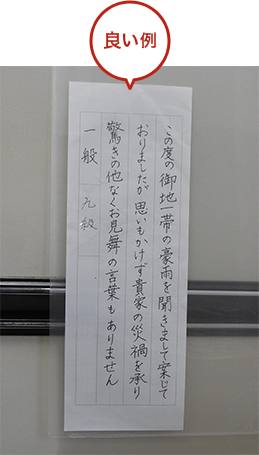 良い例
この度の御地一帯の豪雨を聞きまして案じて
おりましたが思いもかけず貴家の災禍を承り
驚きの他なくお見舞の言葉もありません
一般 九級